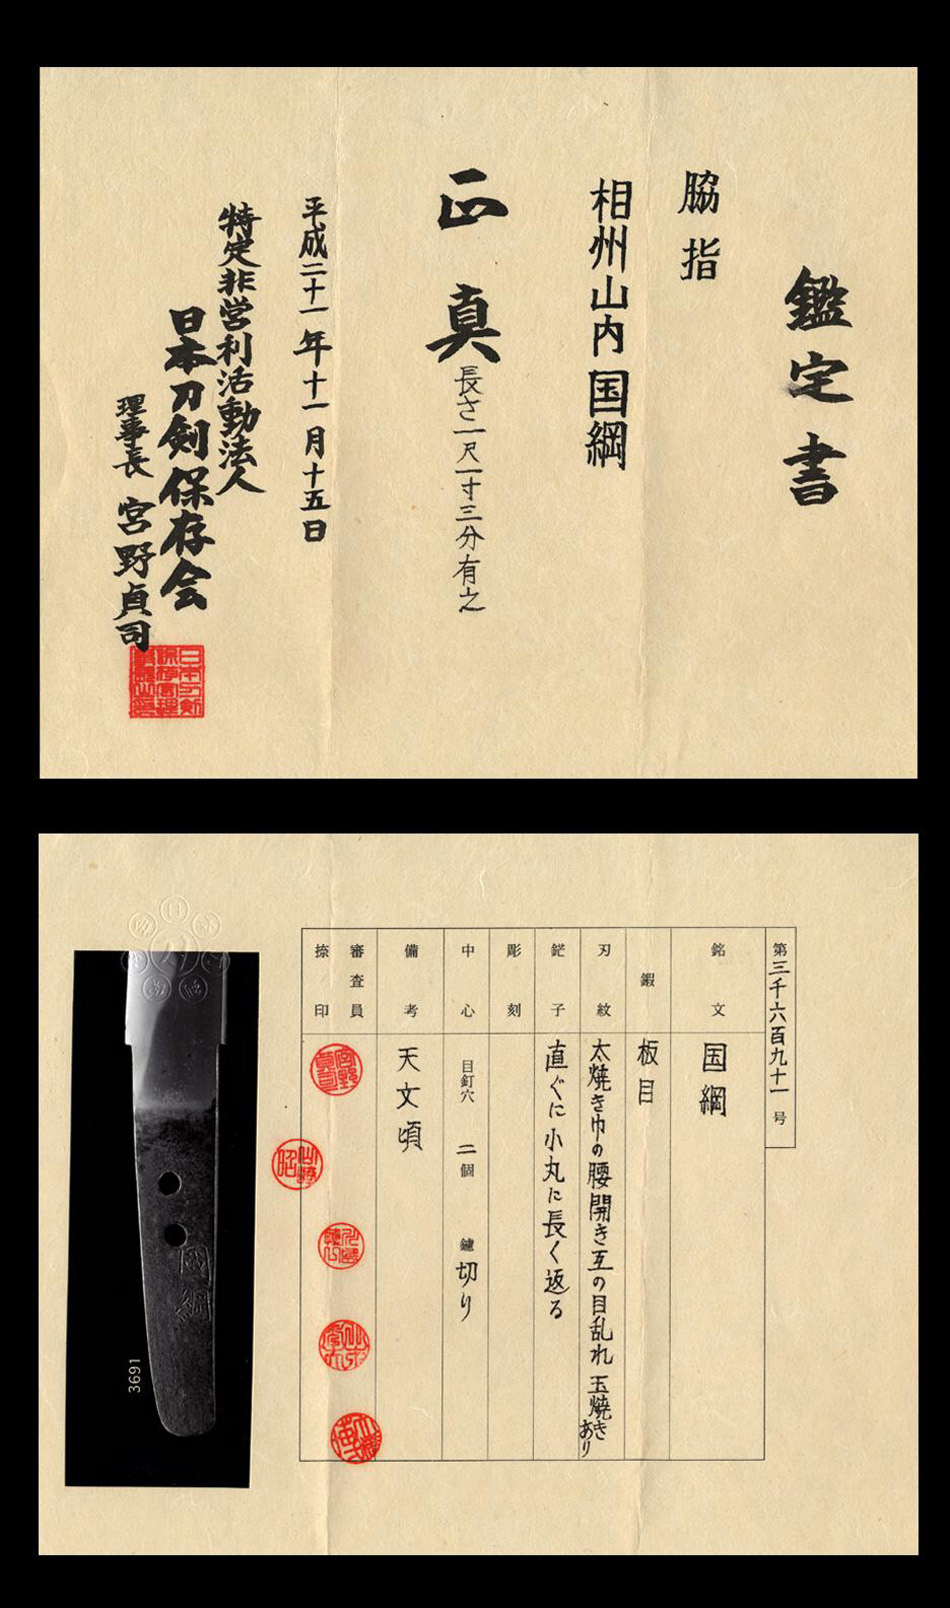 鑑定書
脇指
相州山内国綱
正真
長さ一尺一寸三分有之
平成二十一年十一月十五日
特定非営利活動法人
日本刀剣保存会
理事長 宮野貞司
第三千六百九十一号
銘文
国綱
鍜
板目
刃紋
太焼き巾の腰開き互の目乱れ 玉焼きあり
鋩子
直ぐに小丸に長く返る
彫刻
中心
目釘穴 二個 鑢 切り
備考
天文頃
審査員
捺印
國綱
3691